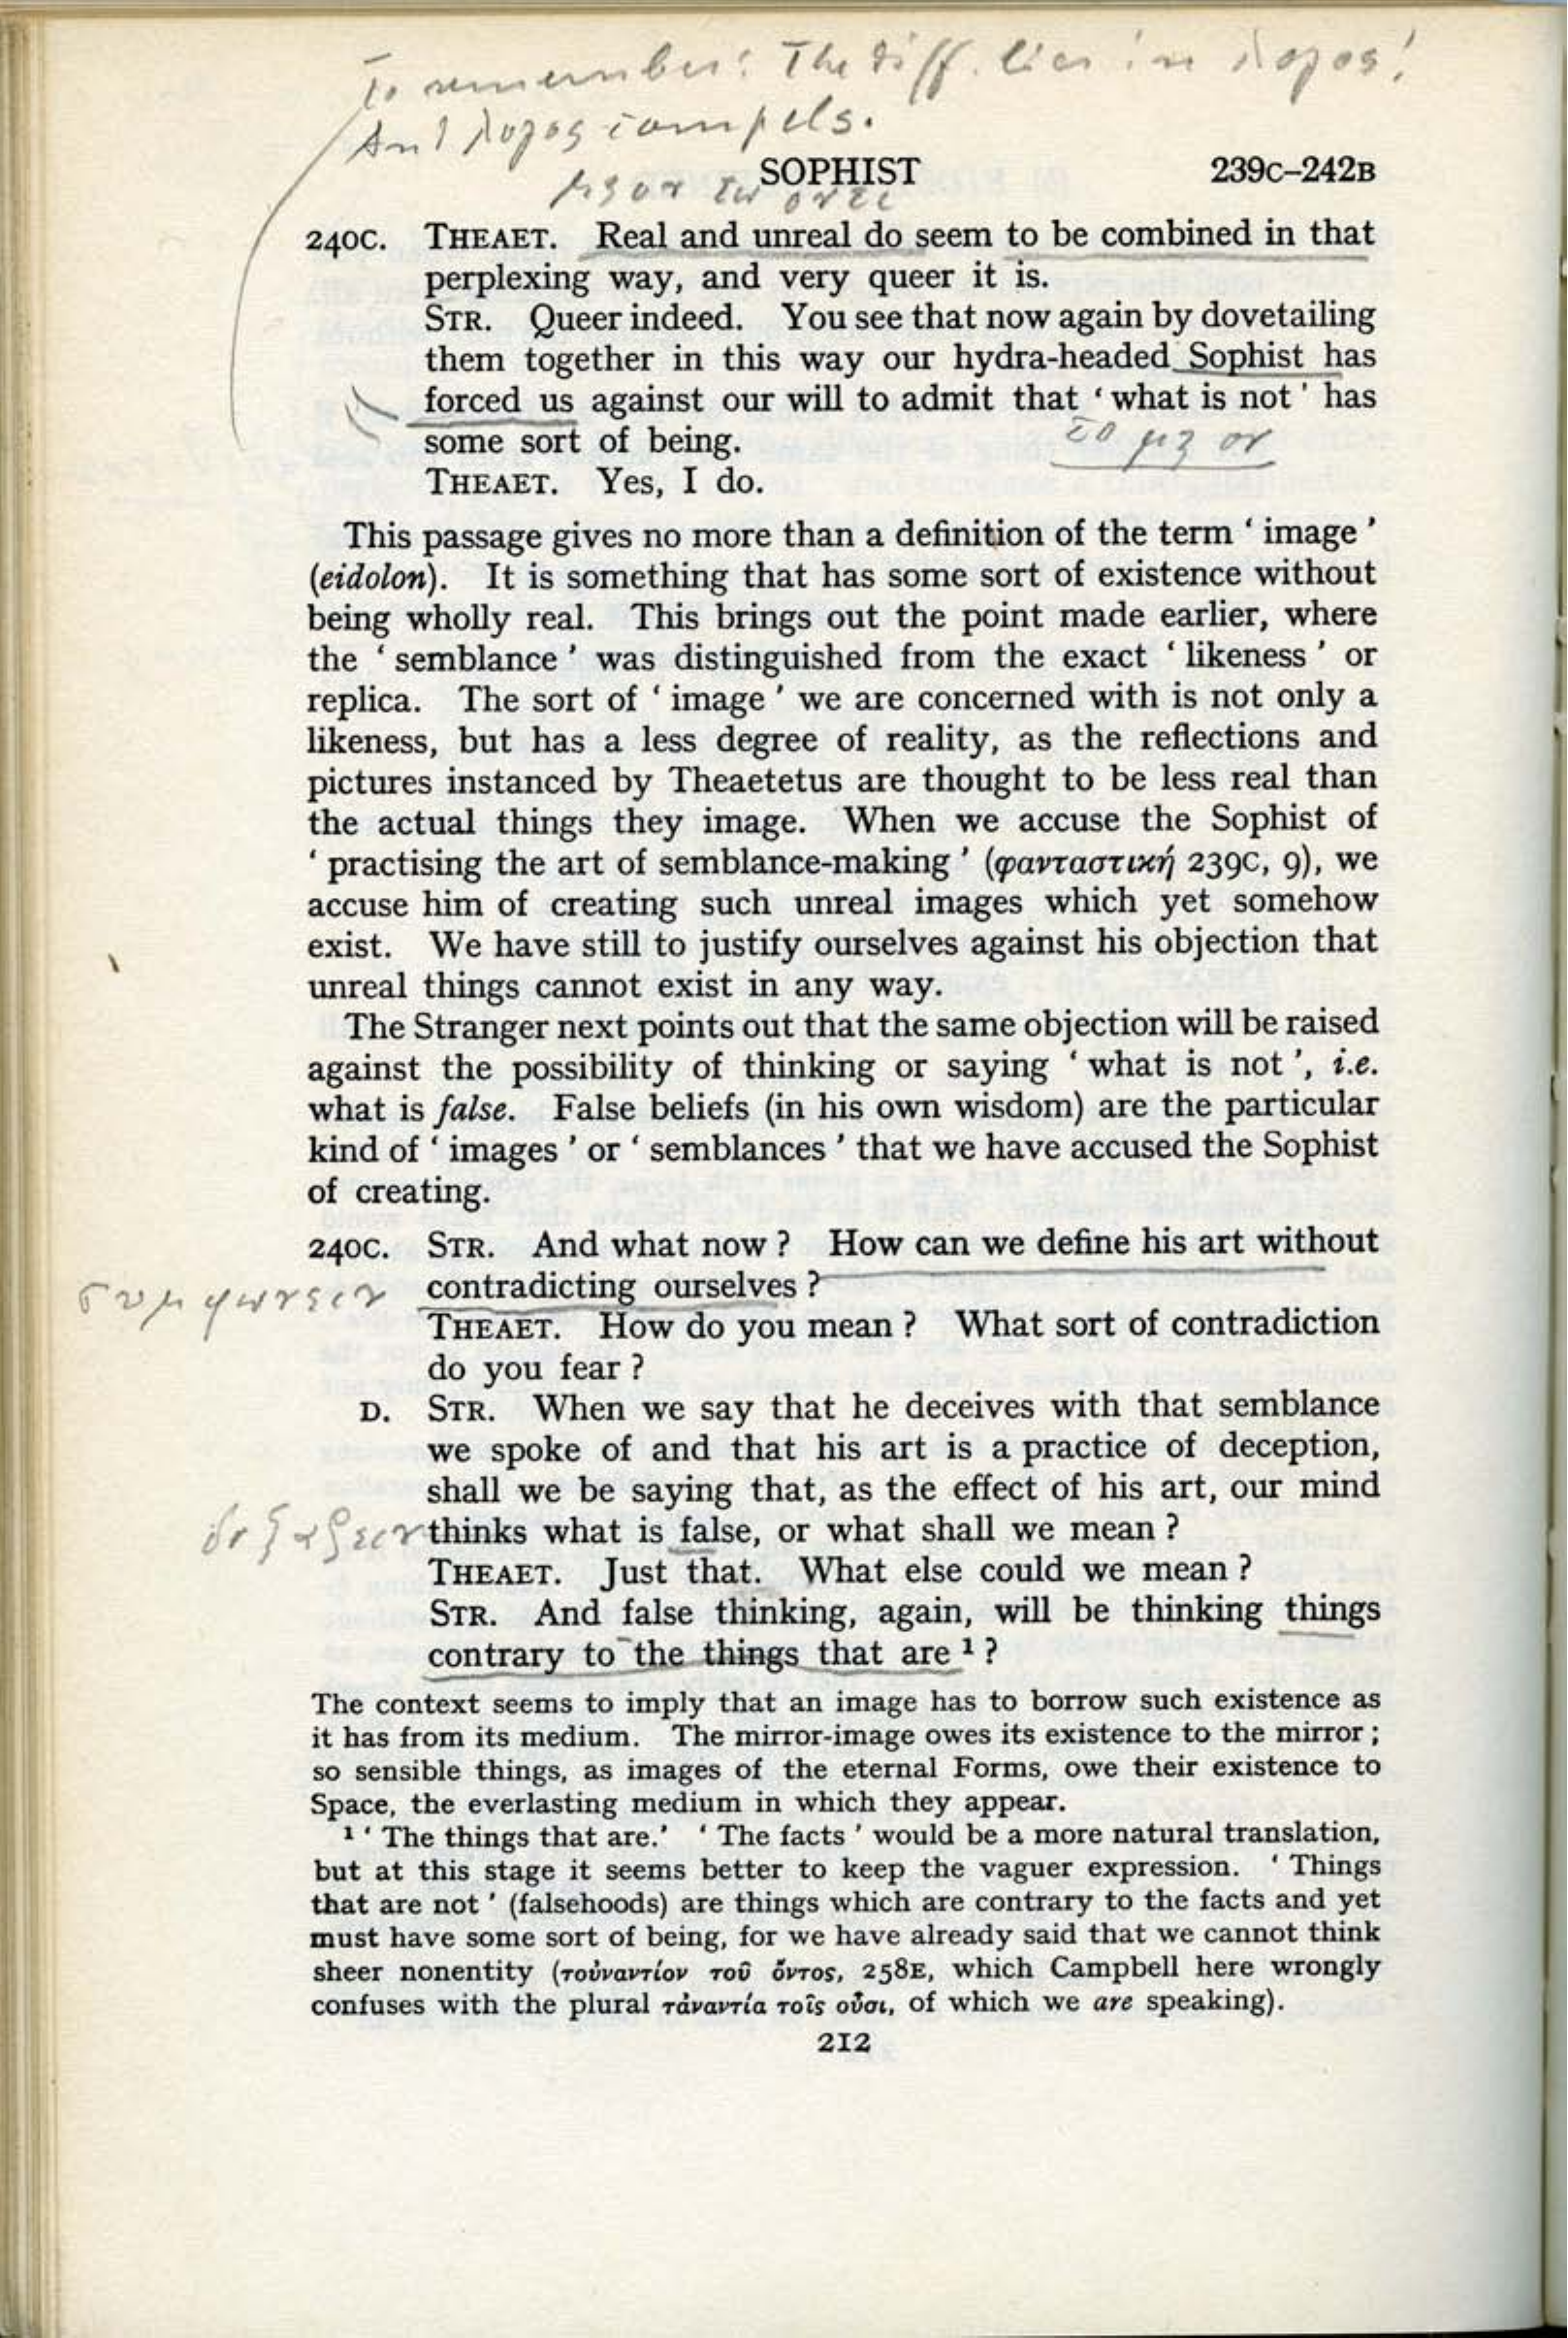 To remember: The diff. lies in λογος!
And λογος compels.
SOPHIST 239C–242B
μη ον τω οντι
240C. THEAET. Real and unreal do seem to be combined in that
perplexing way, and very queer it is.
STR. Queer indeed. You see that now again by dovetailing
them together in this way our hydra-headed Sophist has
forced us against our will to admit that ‘ what is not ’ has
some sort of being.
το μη ον
THEAET. Yes, I do.
This passage gives no more than a definition of the term ‘ image ’
(eidolon). It is something that has some sort of existence without
being wholly real. This brings out the point made earlier, where
the ‘ semblance ’ was distinguished from the exact ‘ likeness ’ or
replica. The sort of ‘ image ’ we are concerned with is not only a
likeness, but has a less degree of reality, as the reflections and
pictures instanced by Theaetetus are thought to be less real than
the actual things they image. When we accuse the Sophist of
‘ practising the art of semblance-making ’ (φανταστική 239C, 9), we
accuse him of creating such unreal images which yet somehow
exist. We have still to justify ourselves against his objection that
unreal things cannot exist in any way.
The Stranger next points out that the same objection will be raised
against the possibility of thinking or saying ‘ what is not ’, i.e.
what is false. False beliefs (in his own wisdom) are the particular
kind of ‘ images ’ or ‘ semblances ’ that we have accused the Sophist
of creating.
240C. STR. And what now ? How can we define his art without
συμφωνειν contradicting ourselves ?
THEAET. How do you mean ? What sort of contradiction
do you fear ?
D. STR. When we say that he deceives with that semblance
we spoke of and that his art is a practice of deception,
shall we be saying that, as the effect of his art, our mind
δοξαζειν thinks what is false, or what shall we mean ?
THEAET. Just that. What else could we mean ?
STR. And false thinking, again, will be thinking things
contrary to the things that are ¹ ?
The context seems to imply that an image has to borrow such existence as
it has from its medium. The mirror-image owes its existence to the mirror ;
so sensible things, as images of the eternal Forms, owe their existence to
Space, the everlasting medium in which they appear.
¹ ‘ The things that are.’ ‘ The facts ’ would be a more natural translation,
but at this stage it seems better to keep the vaguer expression. ‘ Things
that are not ’ (falsehoods) are things which are contrary to the facts and yet
must have some sort of being, for we have already said that we cannot think
sheer nonentity (τοὐναντίον τοῦ ὄντος, 258E, which Campbell here wrongly
confuses with the plural τἀναντία τοῖς οὖσι, of which we are speaking).
212